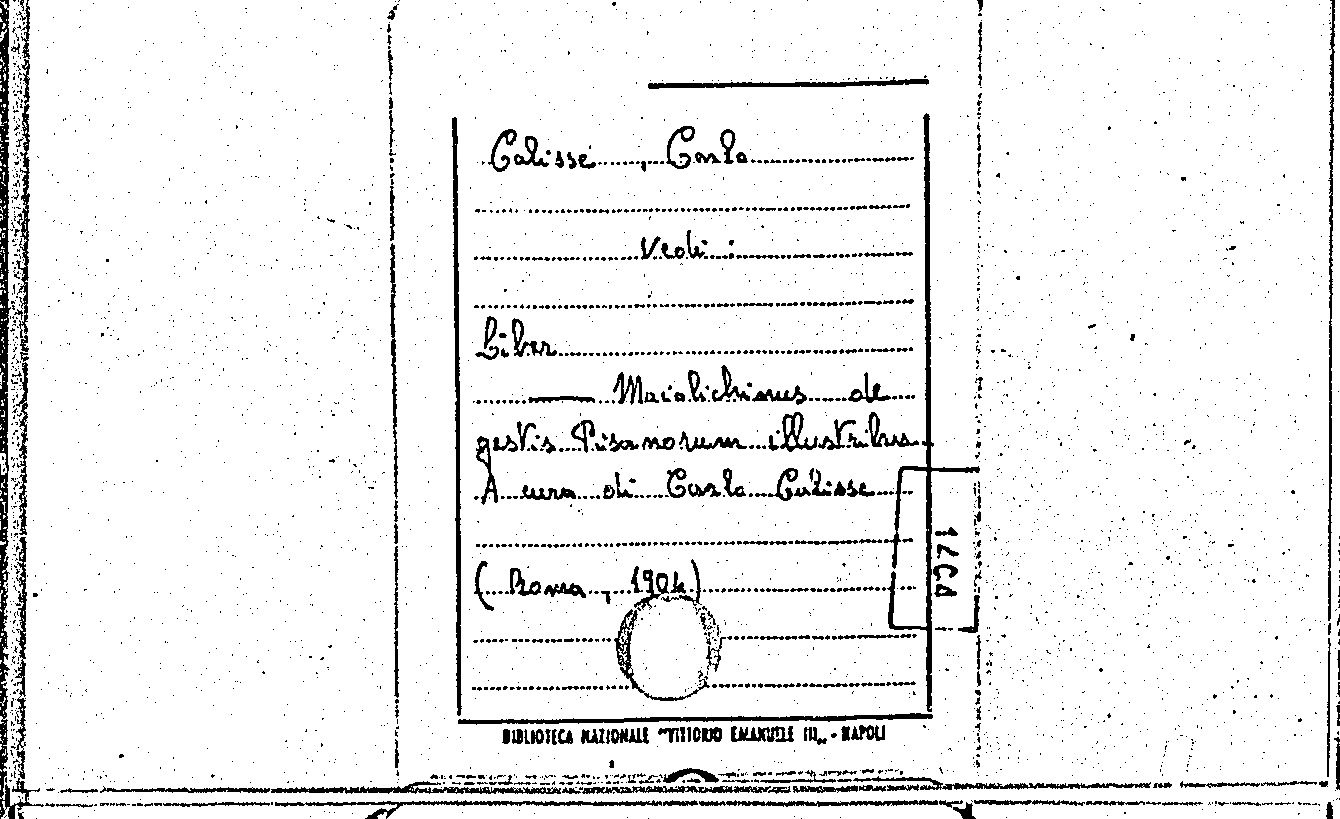 Calisse, Carlo
Vedi:
Liber
— Maiolichinus de
gestis Pisanorum illustribus.
A cura di Carlo Calisse
(Roma, 1904)
BIBLIOTECA NAZIONALE "VITTORIO EMANUELE III„ - NAPOLI